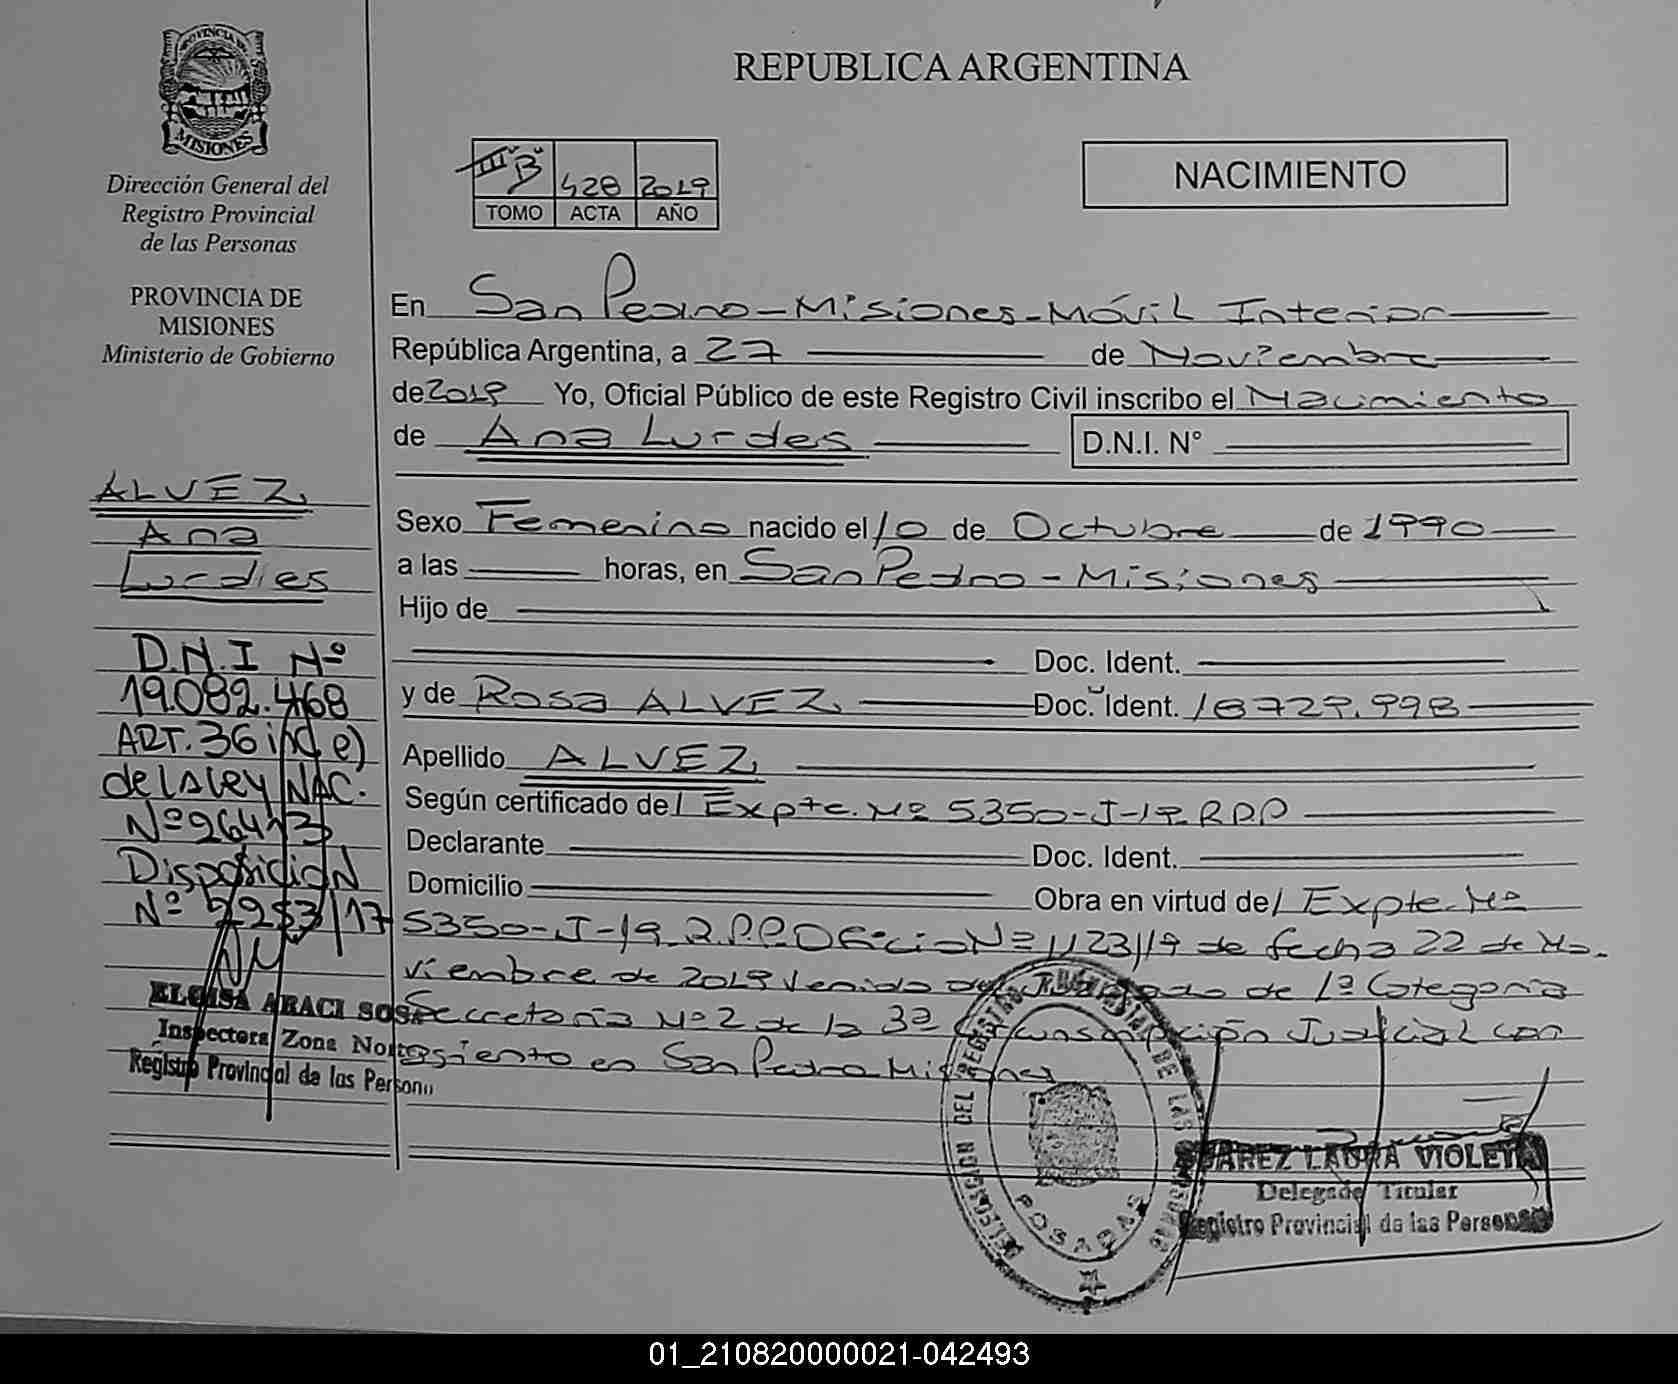 PROVINCIA DE
MISIONES
Dirección General del
Registro Provincial
de las Personas
PROVINCIA DE
MISIONES
Ministerio de Gobierno
REPUBLICA ARGENTINA
428 2019
TOMO ACTA AÑO
NACIMIENTO
En San Pedro - Misiones - Móvil Interior
República Argentina, a 27 de Noviembre
de 2019 Yo, Oficial Público de este Registro Civil inscribo el Nacimiento
de Ana Lurdes D.N.I. N°
Sexo Femenino nacido el 10 de Octubre de 1990
a las horas, en San Pedro - Misiones
Hijo de
Doc. Ident.
y de Rosa ALVEZ Doc. Ident. 18729.998
Apellido ALVEZ
Según certificado del Expte. Nº 5350-J-19 R.P.P
Declarante Doc. Ident.
Domicilio Obra en virtud del Expte. Nº
5350-J-19 R.P.P. Oficio Nº 1123/19 de fecha 22 de No.
viembre de 2019 Venido del Juzgado de 1º Categoria
Secretaría Nº 2 de la 3ª Circunscripción Judicial con
asiento en San Pedro Misiones
ALVEZ
Ana
Lurdes
D.N.I Nº
19.082.468
ART. 36 inc e)
de la ley NAC.
Nº 26413
Disposición
Nº 2253/17
ELOISA ARACI SOSA
Inspectora Zona Norte
Registro Provincial de las Persona
DELEGACION DEL REGISTRO PROVINCIAL DE LAS PERSONAS
POSADAS
SUAREZ LAURA VIOLETA
Delegada Titular
Registro Provincial de las Personas
01_210820000021-042493